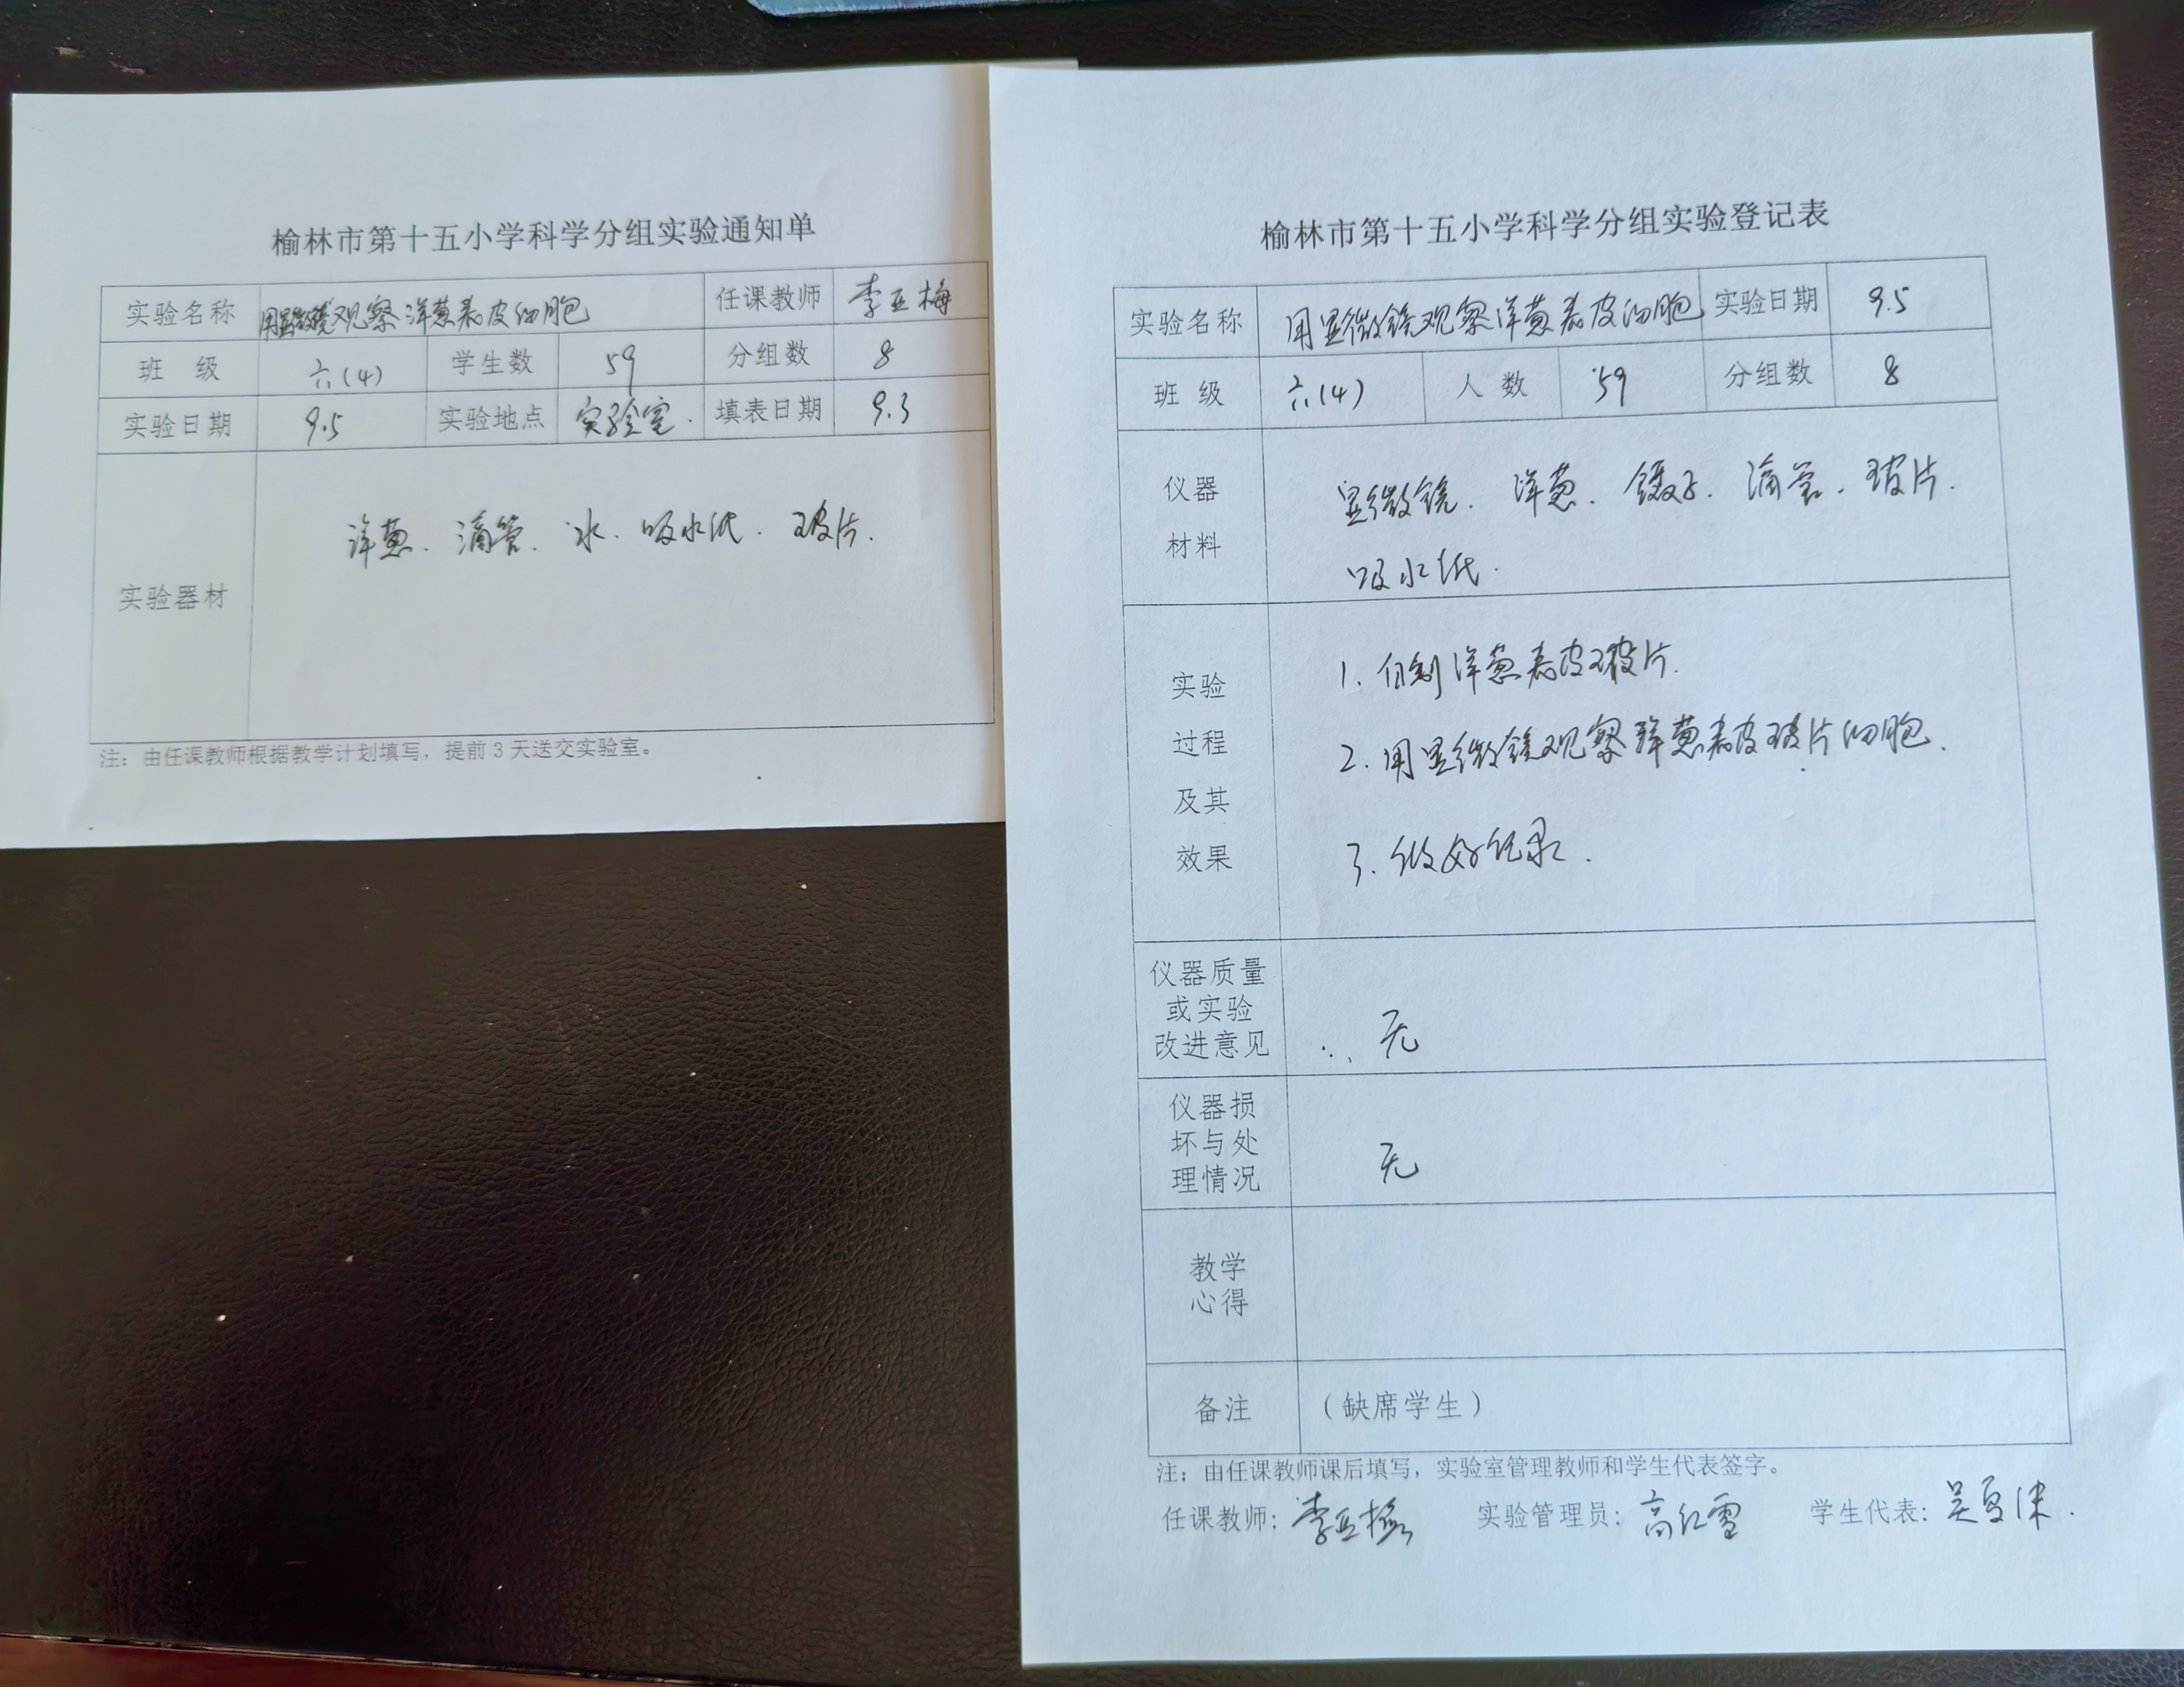 榆林市第十五小学科学分组实验通知单
实验名称 用显微镜观察洋葱表皮细胞 任课教师 李亚梅
班 级 六(4) 学生数 59 分组数 8
实验日期 9.5 实验地点 实验室. 填表日期 9.3
实验器材 洋葱、滴管、水、吸水纸、玻片.
注：由任课教师根据教学计划填写，提前3天送交实验室。
榆林市第十五小学科学分组实验登记表
实验名称 用显微镜观察洋葱表皮细胞 实验日期 9.5
班 级 六(4) 人 数 59 分组数 8
仪器
材料
显微镜、洋葱、镊子、滴管、玻片.
吸水纸.
实验
过程
及其
效果
1. 自制洋葱表皮玻片.
2. 用显微镜观察洋葱表皮玻片细胞.
3. 做好记录.
仪器质量
或实验
改进意见
无
仪器损
坏与处
理情况
无
教学
心得
备注 （缺席学生）
注：由任课教师课后填写，实验室管理教师和学生代表签字。
任课教师：李亚梅 实验管理员：高红雪 学生代表：吴